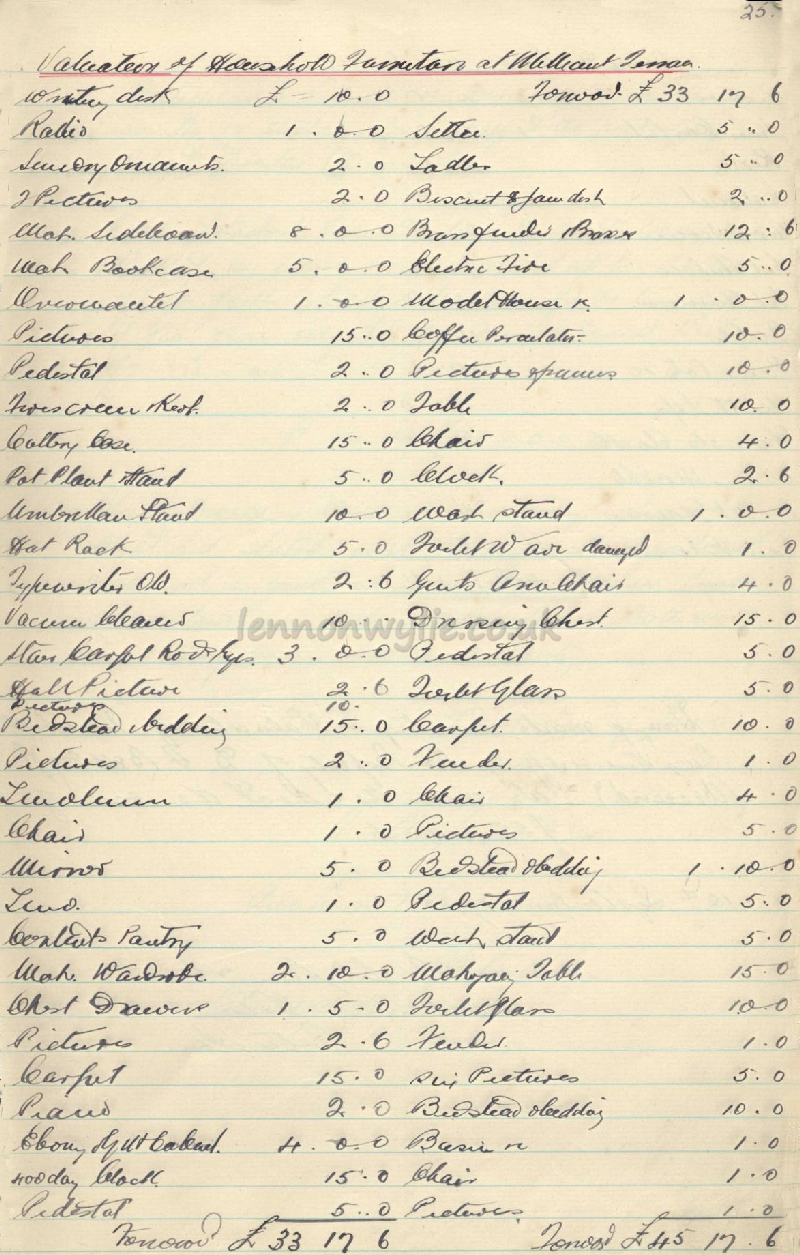 25.
Valuation of Household Furniture at Terrace
Writing desk £ - 10.0 Forwod. £33 17 6
Radio 1.0.0 Settee. 5..0
Sundry Ornaments. 2.0 Ladles 5..0
2 Pictures 2.0 Biscuit & Jam dish 2..0
Mah. Sideboard. 8.0.0 Brass fender & Brasses 12:6
Mah Bookcase 5.0.0 Electric Fire 5..0
Overmantel 1.0.0 Model House 1.0.0
Pictures 15..0 Coffee Perculator 10.0
Pedestal 2..0 Pictures & frames 10.0
Firescreen & 2.0 Table 10.0
Cuttery Case. 15..0 Chair 4.0
Pot Plant Stand 5..0 Clock. 2.6
Umbrellau Stand 10.0 Wash stand 1.0.0
Hat Rack 5.0 Toilet Ware damged 1.0
Typewriter Old. 2:6 Gents Arm Chair 4.0
Vacuum Cleaner 10.- Dressing Chest. 15.0
lennonwylie.co.uk
Stair Carpet Rods & 3.0.0 Pedestal 5.0
Hall Picture 2.6 Toilet Glass 5.0
Pictures 10.
Bedstead & bedding 15.0 Carpet. 10.0
Pictures 2..0 Fender. 1.0
Linoleum 1.0 Chair 4.0
Chair 1.0 Pictures 5.0
Mirror 5.0 Bedstead & bedding 1.10.0
Lino. 1.0 Pedestal 5.0
Contents Pantry 5.0 Wash stand 5.0
Mah. Wardrobe. 2.10.0 Mahogany Table 15.0
Chest Drawers 1.5.0 Toilet glass 10.0
Pictures 2.6 Fender. 1.0
Carpet 15.0 Six Pictures 5.0
Piano 2.0 Bedstead & bedding 10.0
Ebony & Gilt Cabinet. 4.0.0 Basin 1.0
400 day Clock. 15.0 Chair 1.0
Pedestal 5..0 Pictures. 1.0
Forward £33 17 6 Forwod £45 17.6